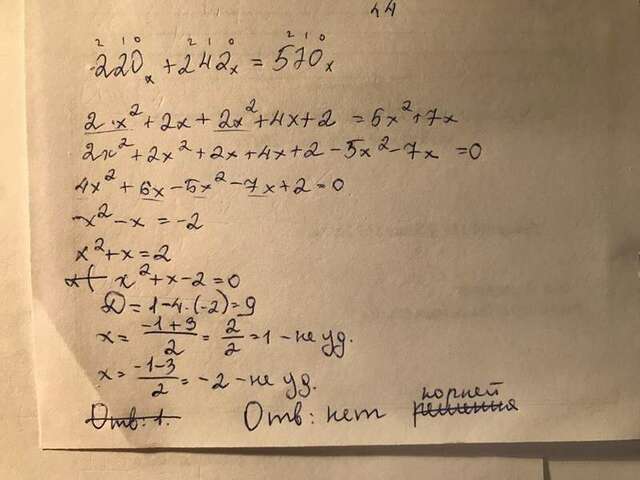 44
2 1 0 2 1 0 2 1 0
220ₓ + 242ₓ = 570ₓ
2·x² + 2x + 2x² + 4x + 2 = 5x² + 7x
2x² + 2x² + 2x + 4x + 2 - 5x² - 7x = 0
4x² + 6x - 5x² - 7x + 2 = 0
-x² - x = -2
x² + x = 2
x( x² + x - 2 = 0
D = 1 - 4·(-2) = 9
x = (-1+3)/2 = 2/2 = 1 - не уд.
x = (-1-3)/2 = -2 - не уд.
корней
Отв: 1. Отв: нет решения